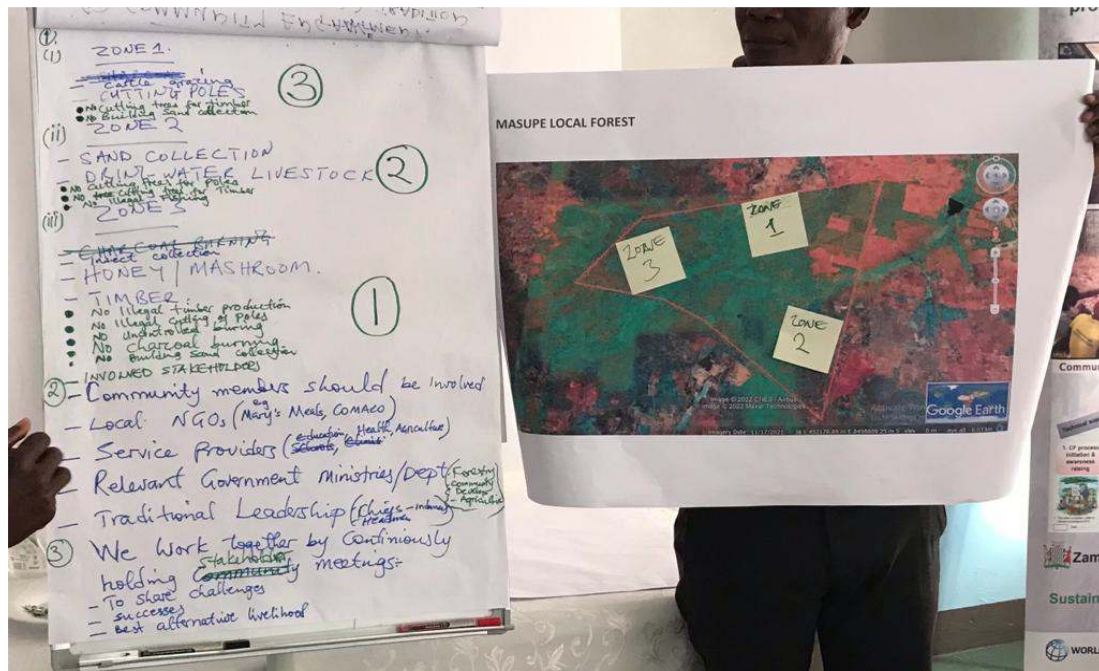 ①
(i) ZONE 1.
- cattle grazing
CUTTING POLES
• No Cutting trees for timber
• No Building Sand collection
③
(ii) ZONE 2
- SAND COLLECTION
- DRINK WATER LIVESTOCK
②
• No cutting trees for Poles
• No tree cutting for Timber
• No Illegal Fishing
(iii) ZONE 3
- CHARCOAL BURNING
- Insect collection
- HONEY / MASHROOM.
- TIMBER
①
• No Illegal timber production
• No Illegal cutting of Poles
• No Uncontroled burning
• No Charcoal burning
• No Building Sand collection
- INVOLVED STAKEHOLDERS
② - Community members should be involved
- Local NGOs (eg Mary's Meals, COMACO)
- Service Providers (Schools, education, Health, Agriculture)
- Relevant Government Ministries/Dept (Forestry
Community
Develop
- Agriculture)
- Traditional Leadership (Chiefs - indunas
Headmen)
③ We Work together by Continiously
holding Community stakeholder meetings:-
- To share challenges
- successes
- Best alternative livelihood
MASUPE LOCAL FOREST
ZONE
1
ZONE
3
ZONE
2
Image © 2022 CNES / Airbus
Image © 2022 Maxar Technologies
Google Earth
Imagery Date: 11/17/2021
pro
Commun
1. CF process
initiation &
awareness
raising
Zam
Sustain
WORL